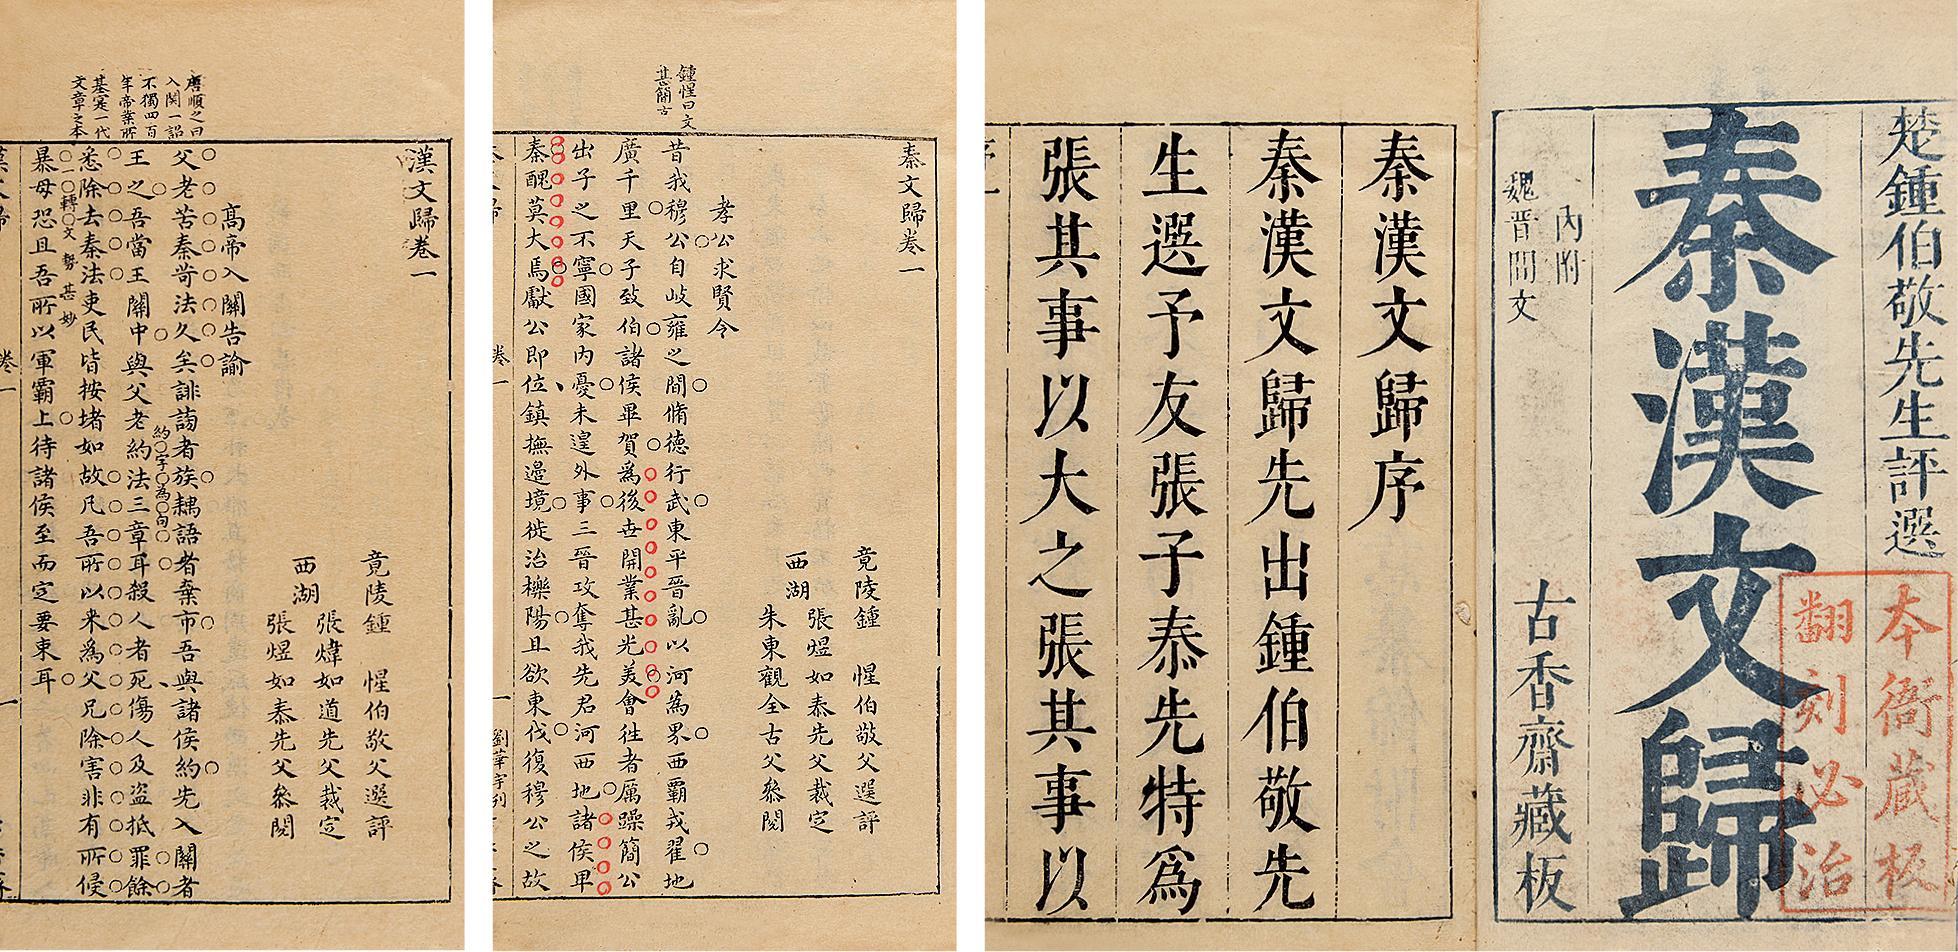 楚鍾伯敬先生評選
秦漢文歸
內附
魏晉間文
古香齋藏板
本衙藏板
翻刻必治
秦漢文歸序
秦漢文歸先出鍾伯敬先
生選予友張子泰先特為
張其事以大之張其事以
秦文歸卷一
竟陵鍾惺伯敬父選評
西湖
張煜如泰先父裁定
朱東觀全古父叅閱
孝公求賢令
鍾惺曰文
甚簡古
昔我穆公自岐雍之間脩德行武東平晉亂以河為界西霸戎翟地
廣千里天子致伯諸侯畢賀為後世開業甚光美會徃者厲躁簡公
出子之不寧國家內憂未遑外事三晉攻奪我先君河西地諸侯卑
秦醜莫大焉獻公即位鎮撫邊境徙治櫟陽且欲東伐復穆公之故
卷一
一
劉華宇刊
漢文歸卷一
竟陵鍾惺伯敬父選評
西湖
張煒如道先父裁定
張煜如泰先父叅閱
高帝入關告諭
唐順之曰
入関一詔
不獨四百
年帝業所
基寔一代
文章之本
父老苦秦苛法久矣誹謗者族耦語者棄市吾與諸侯約先入關者
王之吾當王關中與父老約法三章耳殺人者死傷人及盜抵罪餘
約字為句
悉除去秦法吏民皆按堵如故凡吾所以来為父兄除害非有所侵
一轉文勢甚妙
暴毋恐且吾所以軍霸上待諸侯至而定要束耳
卷一
一